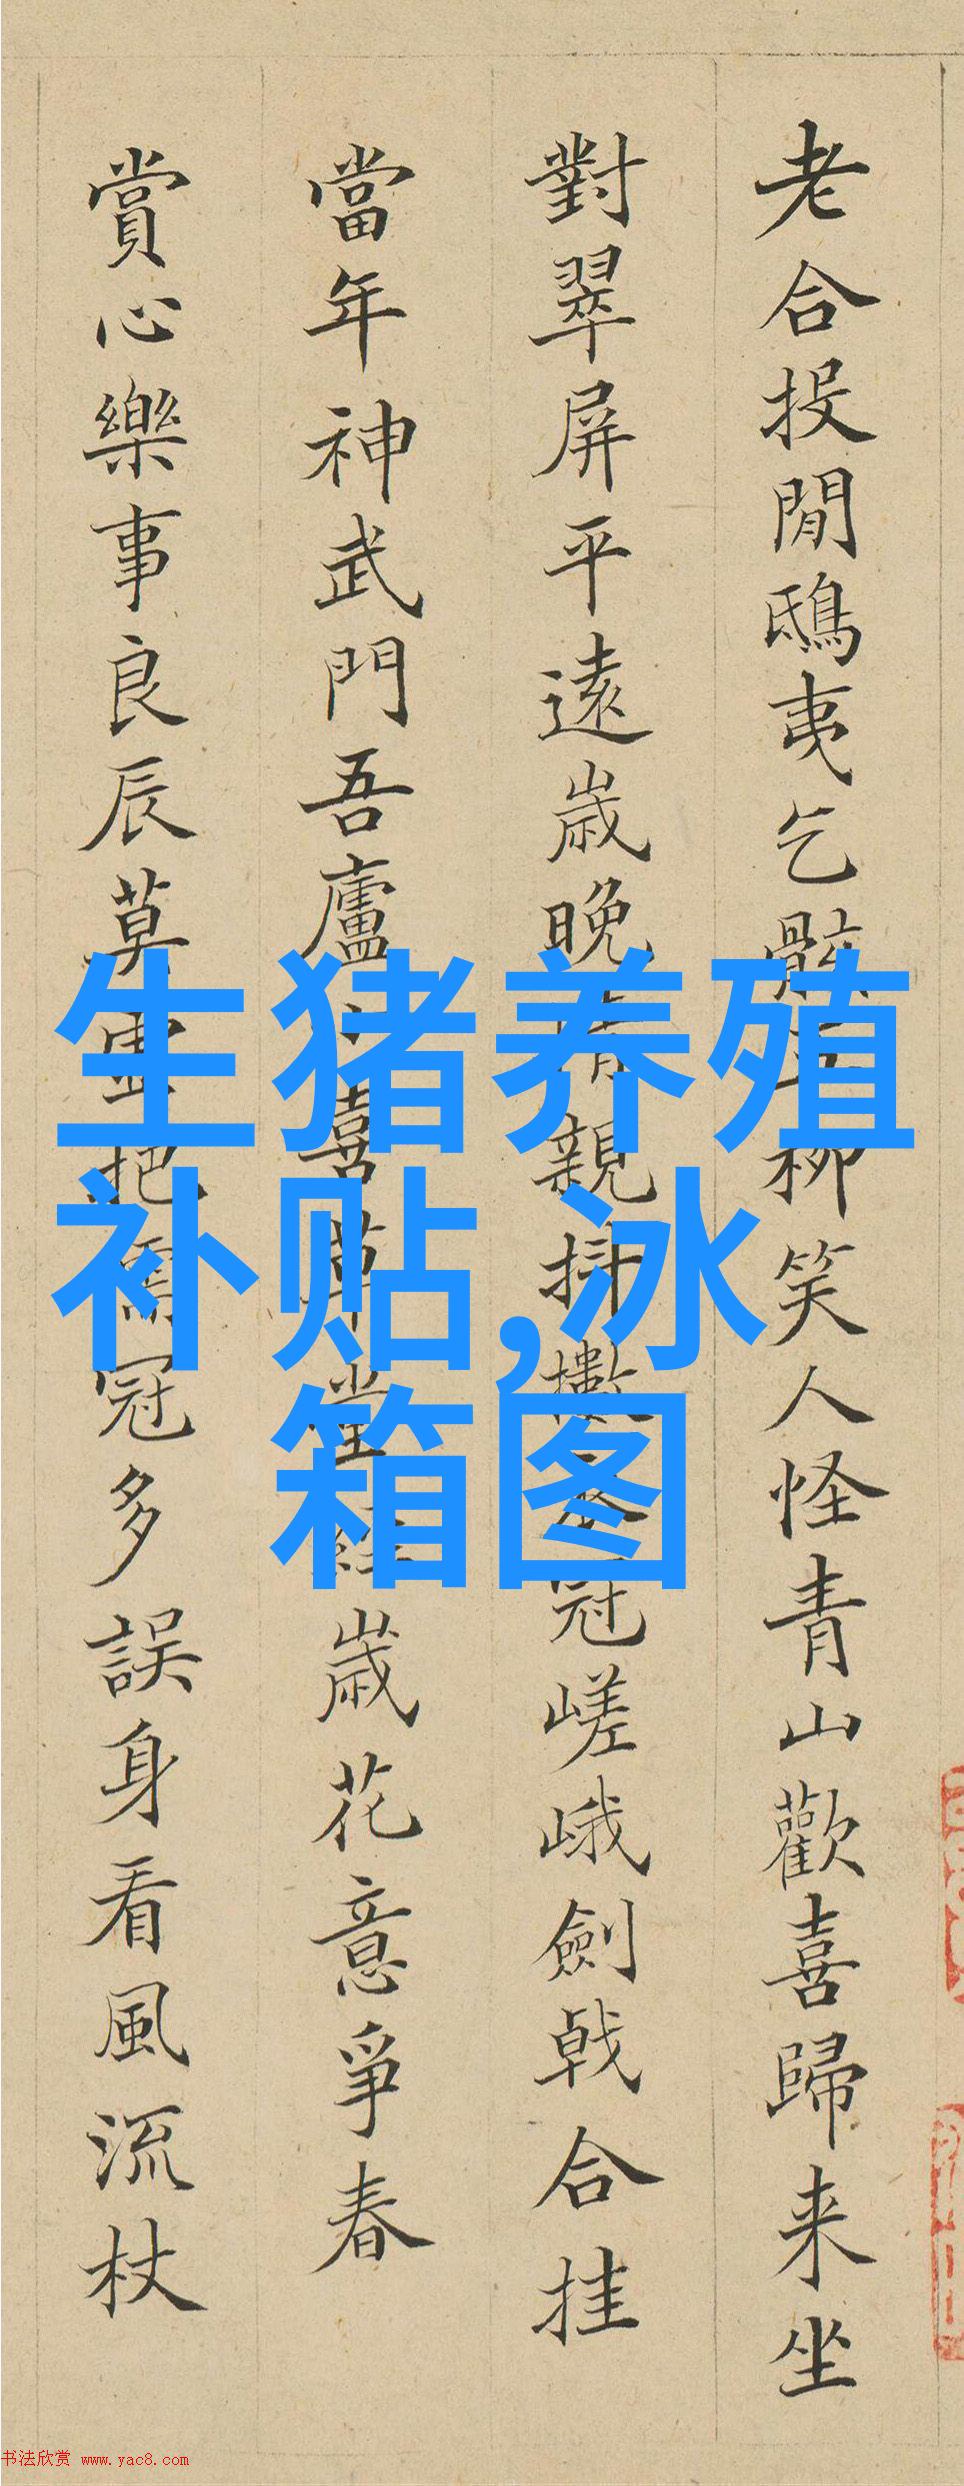 老合投閒鴟夷乞骸五柳笑人怪青山歡喜歸来坐
對翠屏平遠歲晚情親抖擻衣冠嵯峨劍戟合挂
當年神武門吾廬喜草堂經歲花意爭春
賞心樂事良辰莫把儒冠多誤身看風流杖
生猪养殖
补贴,冰
箱图
书法欣赏 www.yac8.com